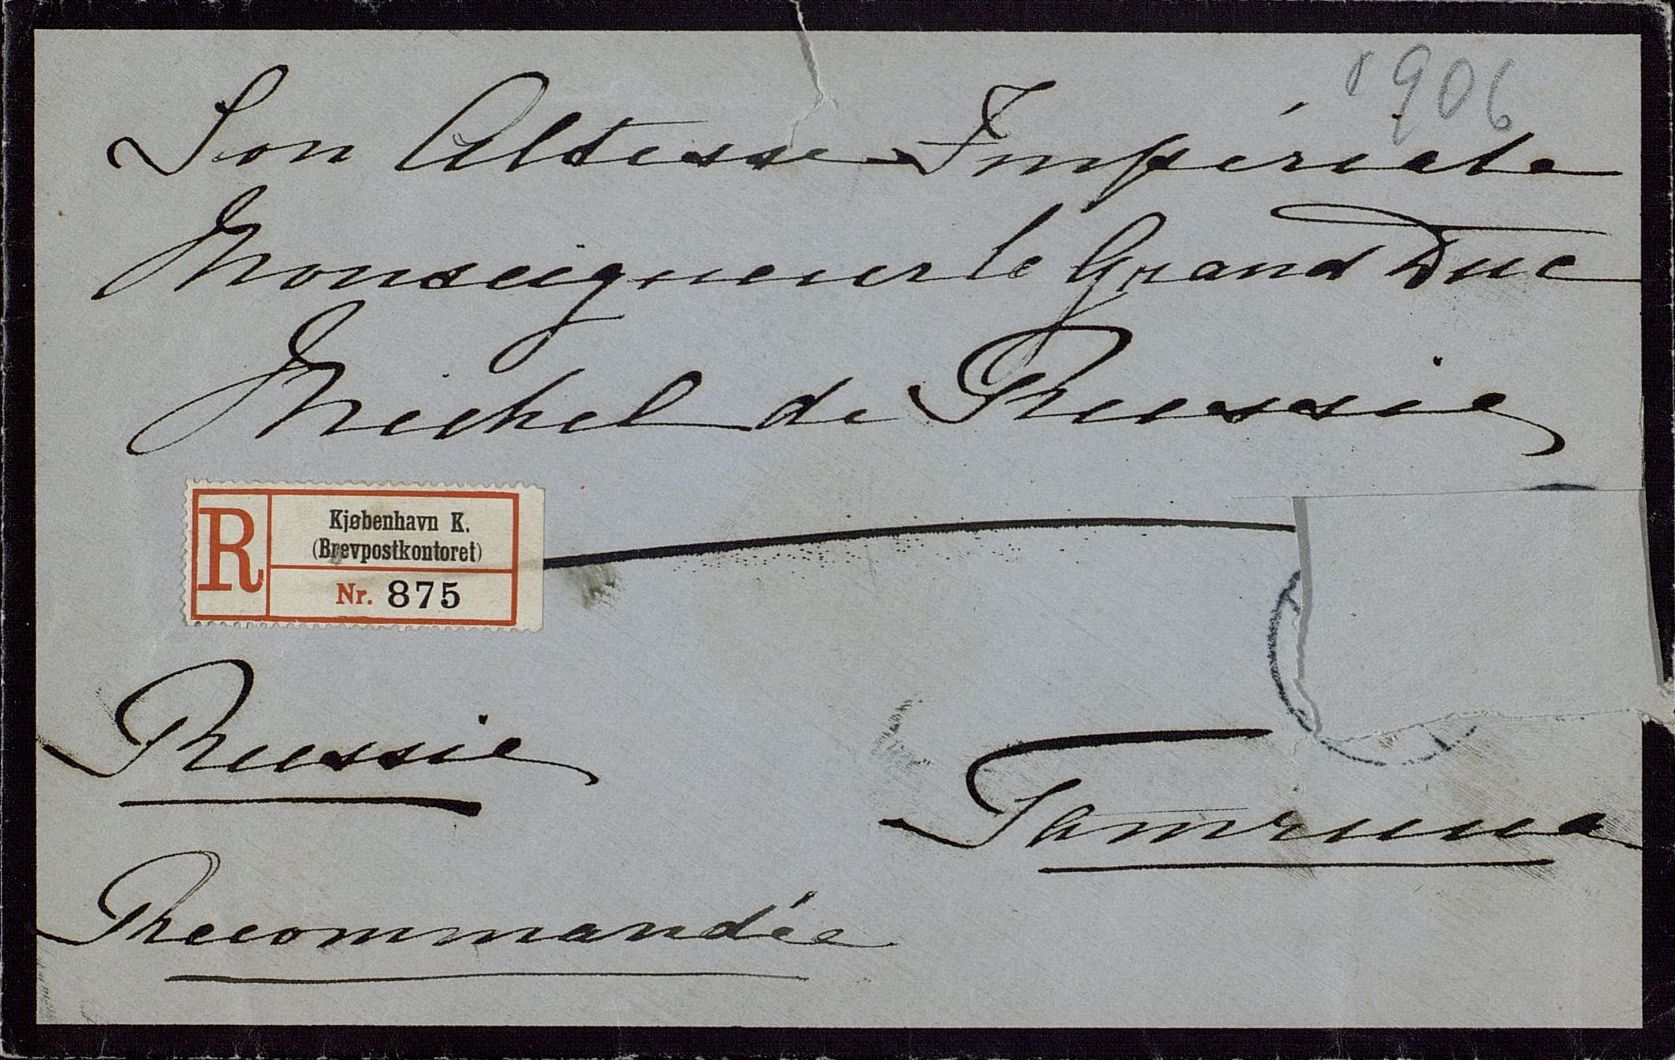 1906
Son Altesse Impériale
Monseigneur le Grand Duc
Michel de Russie
R
Kjøbenhavn K.
(Brevpostkontoret)
Nr. 875
Russie
Гатчина
Recommandée